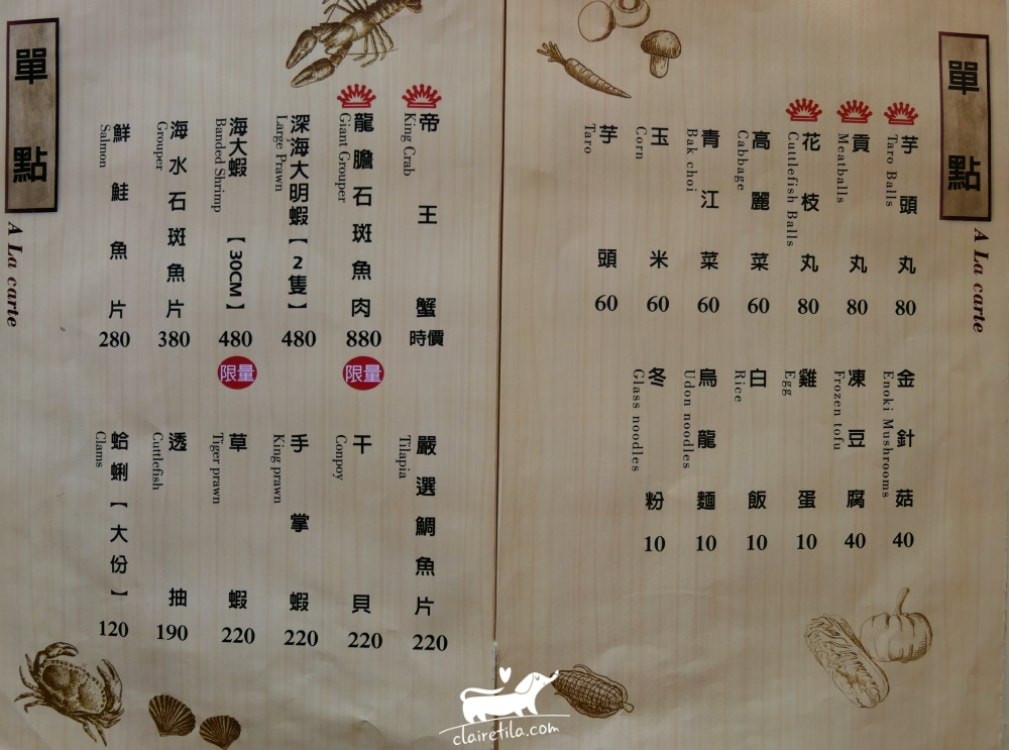 單點
A La carte
芋頭丸
Taro Balls
80
貢丸
Meatballs
80
花枝丸
Cuttlefish Balls
80
高麗菜
Cabbage
60
青江菜
Bak choi
60
玉米
Corn
60
芋頭
Taro
60
金針菇
Enoki Mushrooms
40
凍豆腐
Frozen tofu
40
雞蛋
Egg
10
白飯
Rice
10
烏龍麵
Udon noodles
10
冬粉
Glass noodles
10
帝王蟹
King Crab
時價
龍膽石斑魚肉
Giant Grouper
880
限量
深海大明蝦【2隻】
Large Prawn
480
海大蝦【30CM】
Banded Shrimp
480
限量
海水石斑魚片
Grouper
380
鮮鮭魚片
Salmon
280
嚴選鯛魚片
Tilapia
220
干貝
Conpoy
220
手掌蝦
King prawn
220
草蝦
Tiger prawn
220
透抽
Cuttlefish
190
蛤蜊【大份】
Clams
120
單點
A La carte
clairetila.com